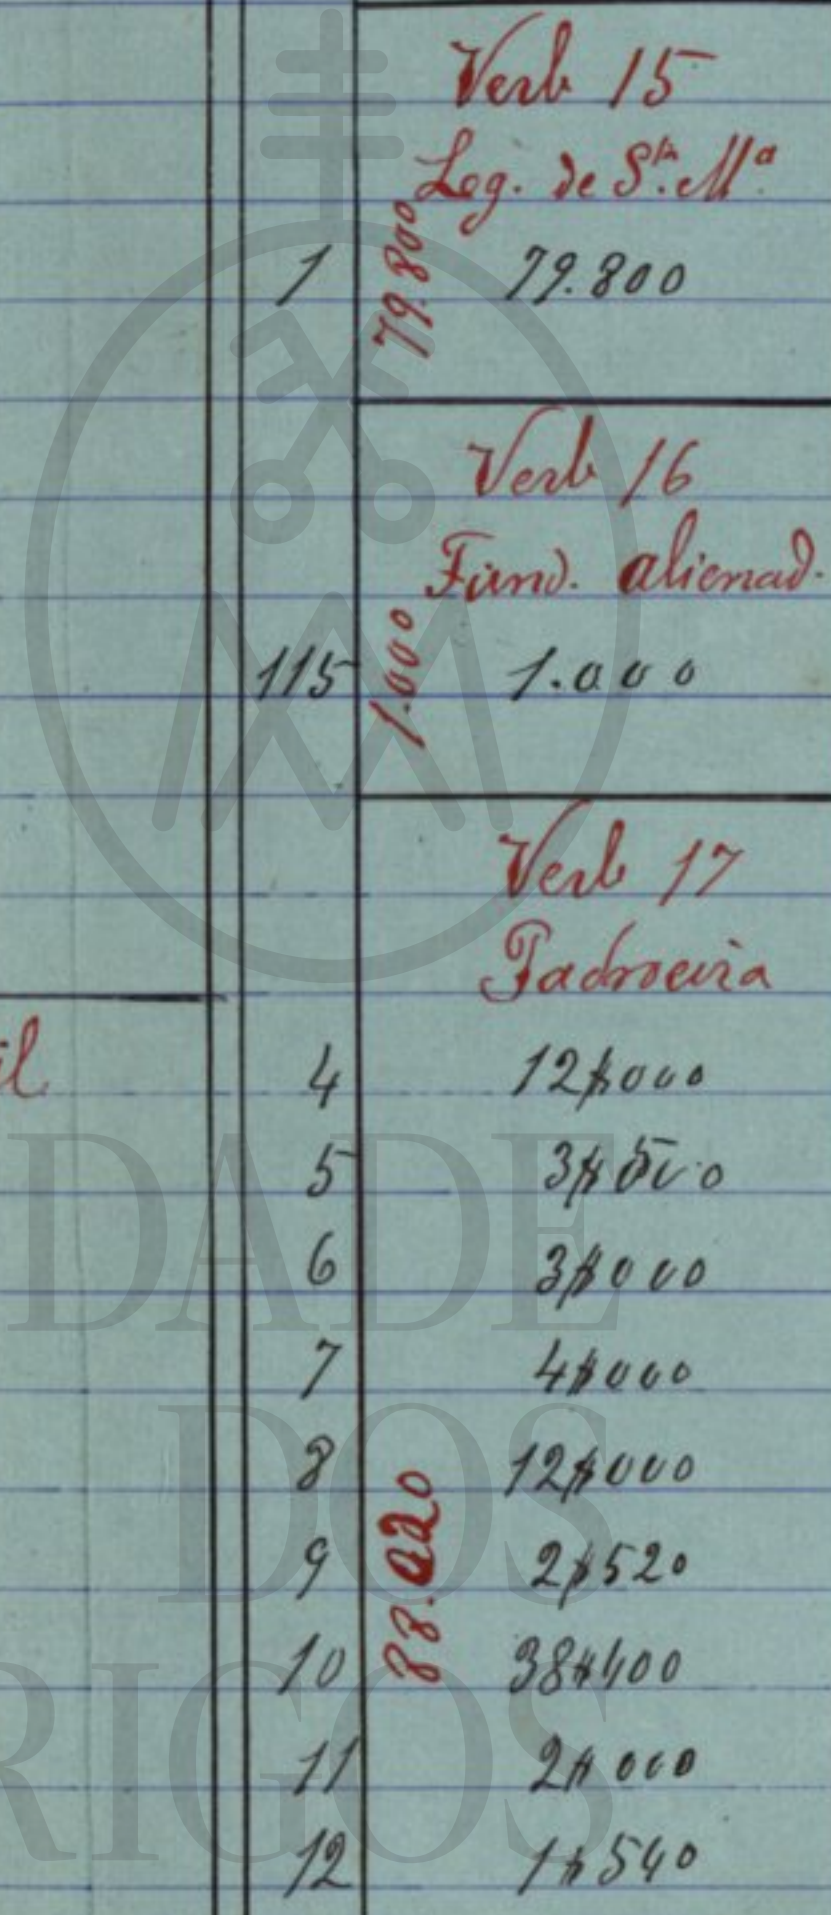 Verb 15
Leg. de Sta. Mª.
79.800
1 79.800
Verb 16
Fund. alienad.
1.000
115 1.000
Verb 17
Padroeira
il
4 12$000
5 3$500
6 3$000
7 4$000
8 12$000
88.020
9 2$520
10 38$400
11 2$000
12 1$540
DADE
DOS
RIGOS